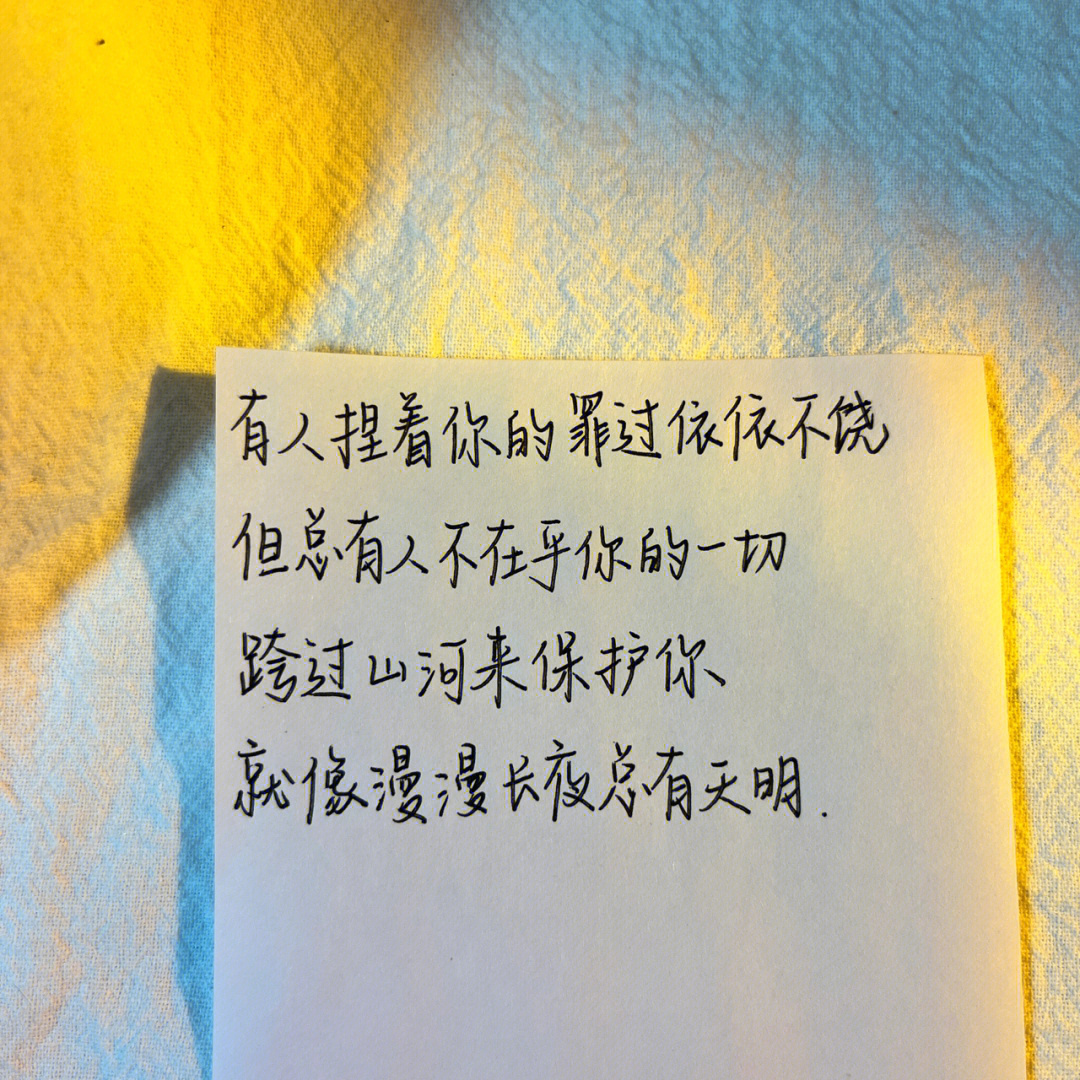 有人捏着你的罪过依依不饶
但总有人不在乎你的一切
跨过山河来保护你
就像漫漫长夜总有天明.